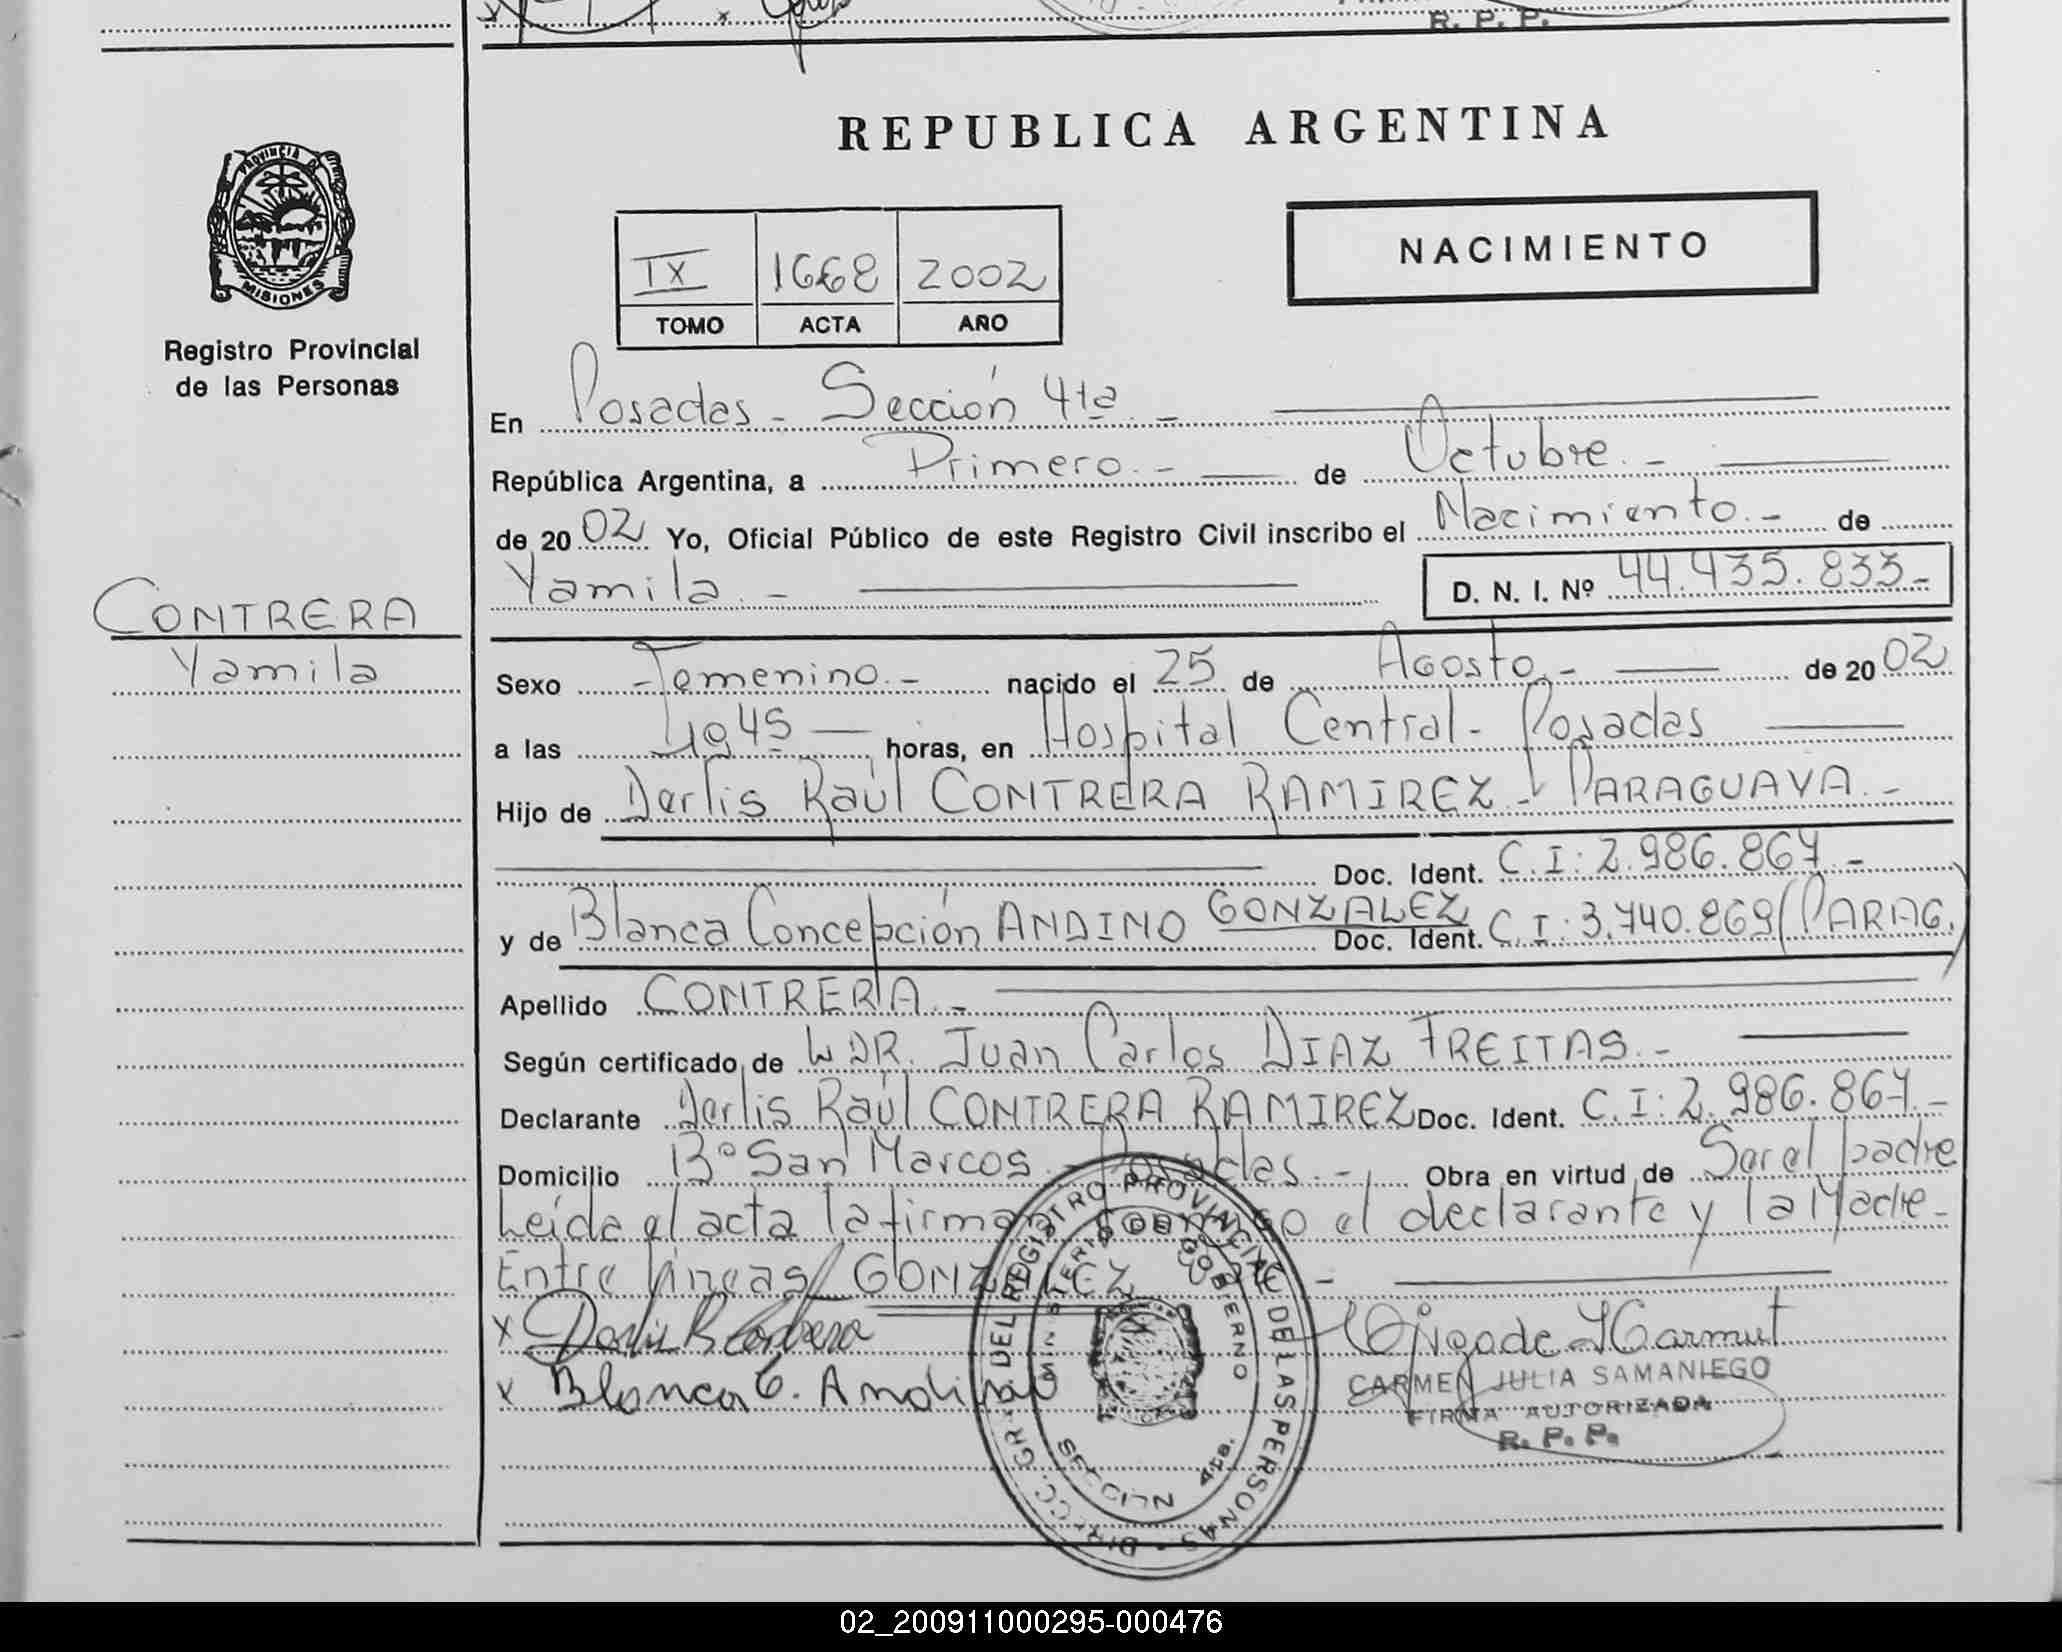 R. P. P.
REPUBLICA ARGENTINA
PROVINCIA DE
MISIONES
Registro Provincial
de las Personas
NACIMIENTO
IX 1668 2002
TOMO ACTA AÑO
En Posadas - Sección 4ta. -
República Argentina, a Primero. - de Octubre. -
de 2002 Yo, Oficial Público de este Registro Civil inscribo el Nacimiento. - de
Yamila. - D. N. I. Nº 44.435.833-
CONTRERA
Yamila
Sexo Femenino. - nacido el 25 de Agosto. - de 2002
a las 1945 horas, en Hospital Central - Posadas
Hijo de Derlis Raúl CONTRERA RAMIREZ - PARAGUAYA. -
Doc. Ident. C.I: 2.986.867. -
y de Blanca Concepción ANDINO GONZALEZ Doc. Ident. C.I: 3.740.869 (PARAG.)
Apellido CONTRERA. -
Según certificado de DR. Juan Carlos DIAZ FREITAS. -
Declarante Derlis Raúl CONTRERA RAMIREZ Doc. Ident. C.I: 2.986.867. -
Domicilio Bº San Marcos. - Posadas. - Obra en virtud de Ser el padre
Leída el acta la firman conmigo el declarante y la Madre -
Entre líneas/ GONZALEZ Vale -
x Derlis R Contrera
x Blanca C. Andino
CARMEN JULIA SAMANIEGO
FIRMA AUTORIZADA
R. P. P.
DIRECC. GRAL. DEL REGISTRO PROVINCIAL DE LAS PERSONAS
MINISTERIO DE GOBIERNO
SECCION 4ta.
02_200911000295-000476